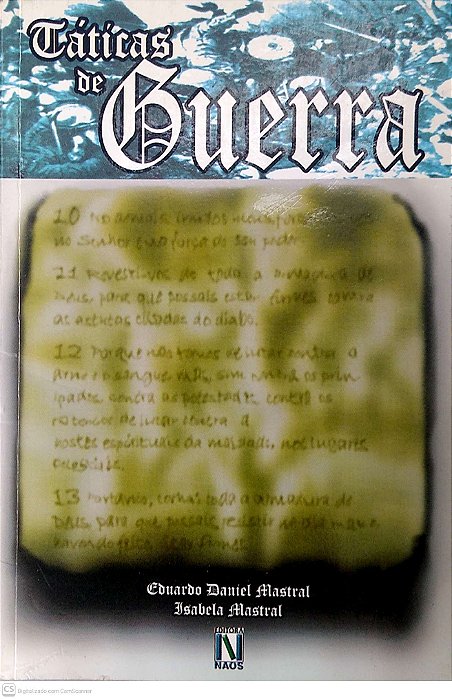 Táticas
de
Guerra
10 No demais, irmãos
no Senhor e na força do seu poder
11 Revesti-vos de toda a armadura de
Deus, para que possais estar firmes contra
as astutas ciladas do diabo.
12 Porque não temos de lutar contra a
carne e o sangue, sim contra os prin
ipados, contra as potestades, contra os
contra a
hostes espirituais da maldade, nos lugares
celestiais.
13 Portanto, tomai toda a armadura de
Deus, para que possais resistir no dia mau e
havendo feito tudo
Eduardo Daniel Mastral
Isabela Mastral
EDITORA
NAOS
CS Digitalizado com CamScanner